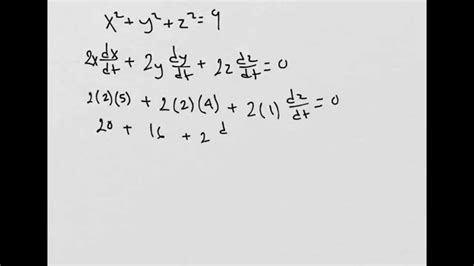 x² + y² + z² = 9
2x dx/dt + 2y dy/dt + 2z dz/dt = 0
2(2)(5) + 2(2)(4) + 2(1) dz/dt = 0
20 + 16 + 2 d